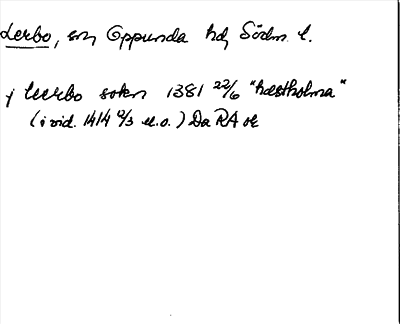 Lerbo, sn, Oppunda hd, Södm. l.
j leerbo sokn 1381 22/6 "hæstholma"
(i vid. 1414 2/3 u.o.) Da RA or